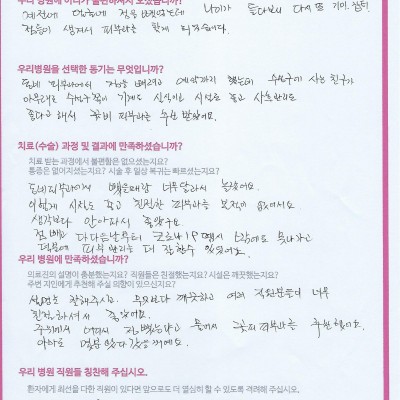 우리 병원에 어디가 불편하셔서 오셨습니까?
예전에 얼굴에 점을 뺐었는데 나이가 들다보니 다시 또 기미, 잡티,
점들이 생겨서 피부과를 찾게 되었습니다.
우리병원을 선택한 동기는 무엇입니까?
동네 피부과에서 점을 빼려고 예약까지 했는데 수성구에 사는 친구가
아무래도 수성구쪽이 기계도 신식이고 시설도 좋고 사후관리도
좋다고 해서 꽃비 피부과를 추천 받았어요.
치료(수술) 과정 및 결과에 만족하셨습니까?
치료 받는 과정에서 불편함은 없으셨는지요?
통증은 없어지셨는지요? 시술 후 일상 복귀는 빠르셨는지요?
동네피부과에서 뺐을때랑 너무 달라서 놀랐어요.
이렇게 시설도 좋고 친절한 피부과는 보적이 없어서요.
생각보다 안아파서 좋았구요.
점 빼고 다다음날부터 코로나19 땜에 노가고
덕분에 피부 관리를 더 잘할수 있었어요.
우리 병원에 만족하셨습니까?
의료진의 설명이 충분했는지요? 직원들은 친절했는지요? 시설은 깨끗했는지요?
주변 지인에게 추천해 주실 의향이 있으신지요?
설명도 잘해주시고 무엇보다 깨끗하고 여러 직원분들이 너무
친절하셔서 좋았어요.
주위에서 어디서 점뺐냐고 물어서 꽃비피부과를 추천했어요.
아마도 몇분 왔다갔을꺼예요.
우리 병원 직원들 칭찬해 주십시오.
환자에게 최선을 다한 직원이 있다면 앞으로도 더 열심히 할 수 있도록 격려해 주십시오.